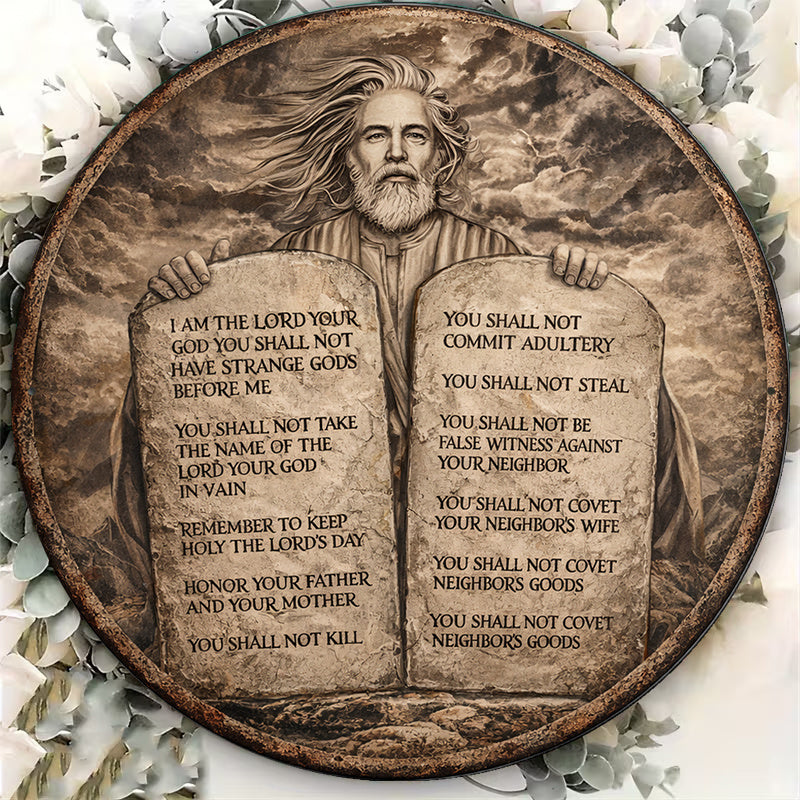 I AM THE LORD YOUR
GOD YOU SHALL NOT
HAVE STRANGE GODS
BEFORE ME
YOU SHALL NOT TAKE
THE NAME OF THE
LORD YOUR GOD
IN VAIN
REMEMBER TO KEEP
HOLY THE LORD'S DAY
HONOR YOUR FATHER
AND YOUR MOTHER
YOU SHALL NOT KILL
YOU SHALL NOT
COMMIT ADULTERY
YOU SHALL NOT STEAL
YOU SHALL NOT BE
FALSE WITNESS AGAINST
YOUR NEIGHBOR
YOU SHALL NOT COVET
YOUR NEIGHBOR'S WIFE
YOU SHALL NOT COVET
NEIGHBOR'S GOODS
YOU SHALL NOT COVET
NEIGHBOR'S GOODS